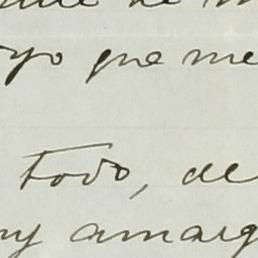 de
yo que me
Todo, de
amarg